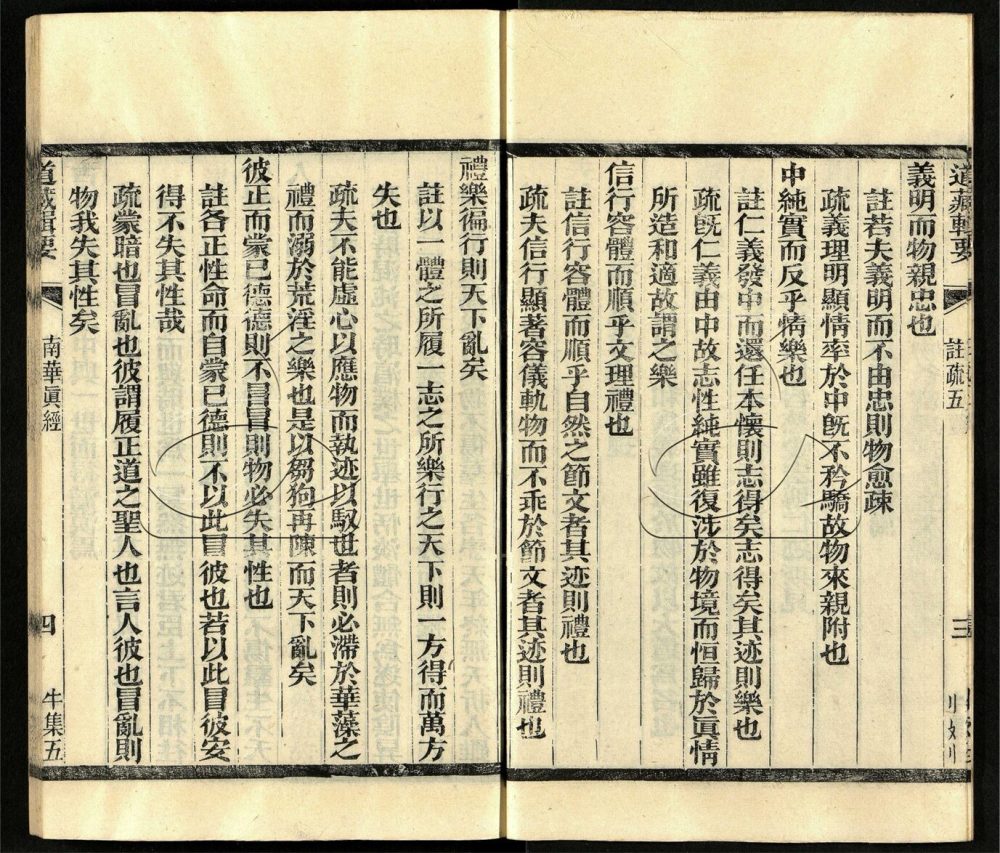 道藏輯要
註疏五
三
義明而物親忠也
註若夫義明而不由忠則物愈疎
疏義理明顯情率於中旣不矜驕故物來親附也
中純實而反乎情樂也
註仁義發中而還任本懷則志得矣志得矣其迹則樂也
疏旣仁義由中故志性純實雖復涉於物境而恒歸於眞情
所造和適故謂之樂
信行容體而順乎文理禮也
註信行容體而順乎自然之節文者其迹則禮也
疏夫信行顯著容儀軌物而不乖於節文者其迹則禮也
禮樂徧行則天下亂矣
註以一體之所履一志之所樂行之天下則一方得而萬方
失也
疏夫不能虛心以應物而執迹以馭世者則必滯於華藻之
禮而溺於荒淫之樂也是以芻狗再陳而天下亂矣
彼正而蒙已德德則不冒冒則物必失其性也
註各正性命而自蒙已德則不以此冒彼也若以此冒彼安
得不失其性哉
疏蒙暗也冒亂也彼謂履正道之聖人也言人彼也冒亂則
物我失其性矣
道藏輯要
南華眞經
四
牛集五